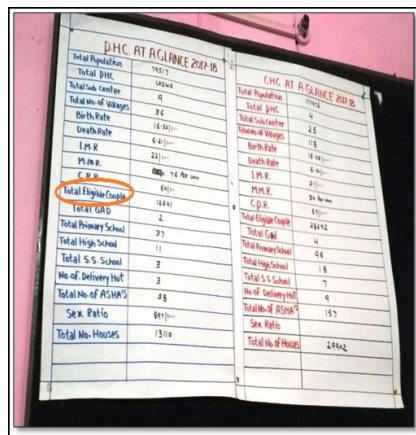 DHC AT A GLANCE 2017-18
Total Population 79517
Total DHC LADWA
Total Sub Center 9
Total No. of Villages 36
Birth Rate
Death Rate
I.M.R
M.M.R. 76 Per
C.P.R.
Total Eligible Couple 12641
Total GAD 2
Total Primary School 37
Total High School 11
Total S.S. School 3
No. of Delivery Hut 3
Total No. of ASHA'S 58
Sex Ratio
Total No. Houses 13110
CHC AT A GLANCE 2017-18
Total Population
Total PHC 4
Total Sub Center 25
Total No. of Villages 118
Birth Rate
Death Rate
I.M.R
M.M.R.
C.P.R.
Total Eligible Couple 28692
Total Gad 4
Total Primary School 96
Total High School 18
Total S.S. School 7
No. of Delivery Hut 9
Total No. of ASHA'S 157
Sex Ratio
Total No of Houses 29902